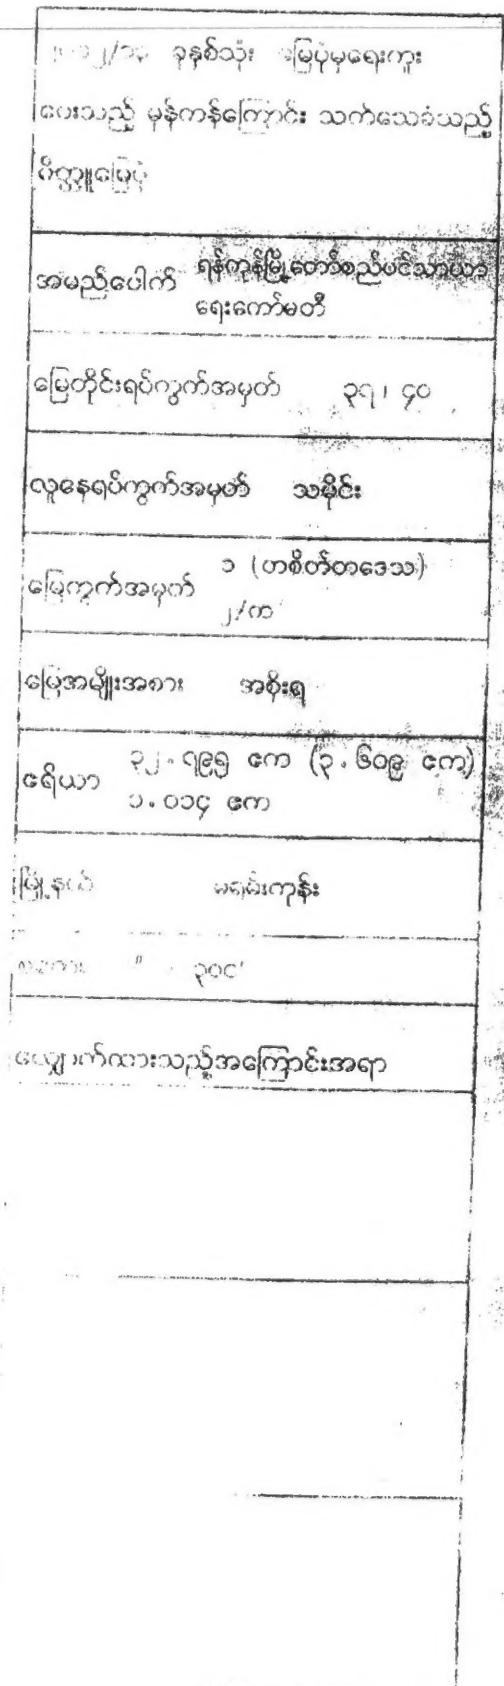 ခုနှစ်သုံး မြေပုံမှရေးကူး
ပေးသည် မှန်ကန်ကြောင်း သက်သေခံသည့်
မြေပုံ
အမည်ပေါက် ရန်ကုန်မြို့တော်စည်ပင်သာယာ
ရေးကော်မတီ
မြေတိုင်းရပ်ကွက်အမှတ် ၃၇၊ ၄၀
လူနေရပ်ကွက်အမှတ် သမိုင်း
မြေကွက်အမှတ် ၁ (ဟစိတ်တဒေသ)
၂/က
မြေအမျိုးအစား အစိုးရ
ဧရိယာ ၃၂.၇၉၅ ဧက (၃.၆၀၉ ဧက)
၁.၀၁၄ ဧက
မြို့နယ် မရမ်းကုန်း
လျှောက်ထားသည့်အကြောင်းအရာ